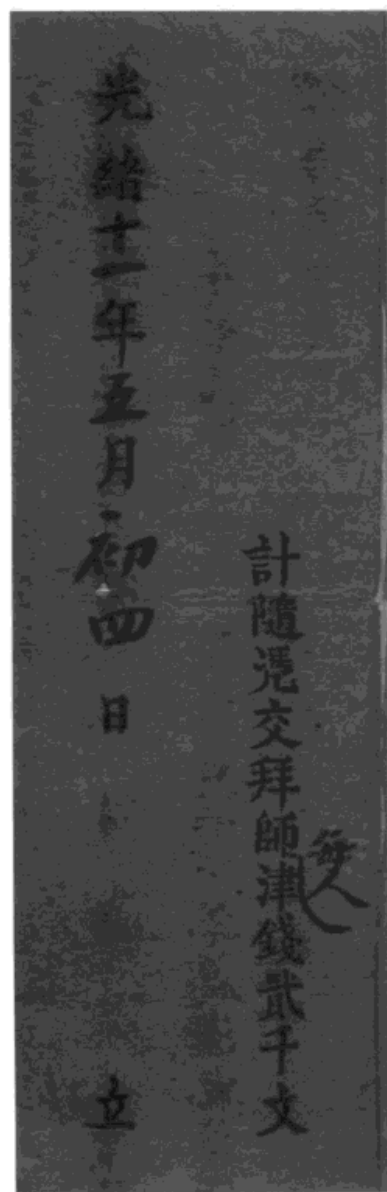 計隨憑交拜師每人津錢貳千文
光緒十一年五月初四日立